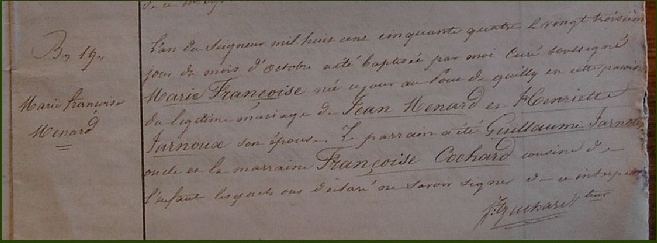 B. 19.
Marie françoise
Menard
L'an du Seigneur mil huit cent cinquante quatre le vingt troisième
jour du mois d'Octobre a été baptisée par moi Curé soussigné
Marie Françoise née ce jour au de quilly en cette paroisse
du légitime mariage de Jean Menard et Henriette
Jarnoux son épouse. Le parrain a été Guillaume Jarnoux
oncle et la marraine Françoise Cochard cousine de
l'enfant lesquels ont déclaré ne savoir signer de ce